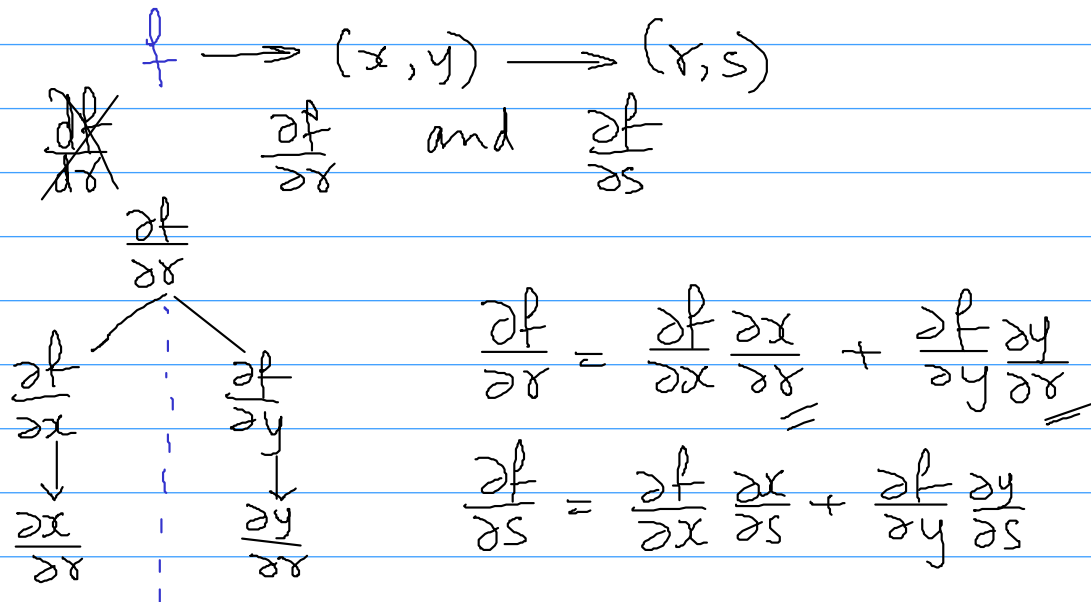 f → (x, y) → (r, s)
df/dr ∂f/∂r and ∂f/∂s
∂f/∂r
∂f/∂x ∂f/∂y
∂x/∂r ∂y/∂r
∂f/∂r = ∂f/∂x ∂x/∂r + ∂f/∂y ∂y/∂r
∂f/∂s = ∂f/∂x ∂x/∂s + ∂f/∂y ∂y/∂s